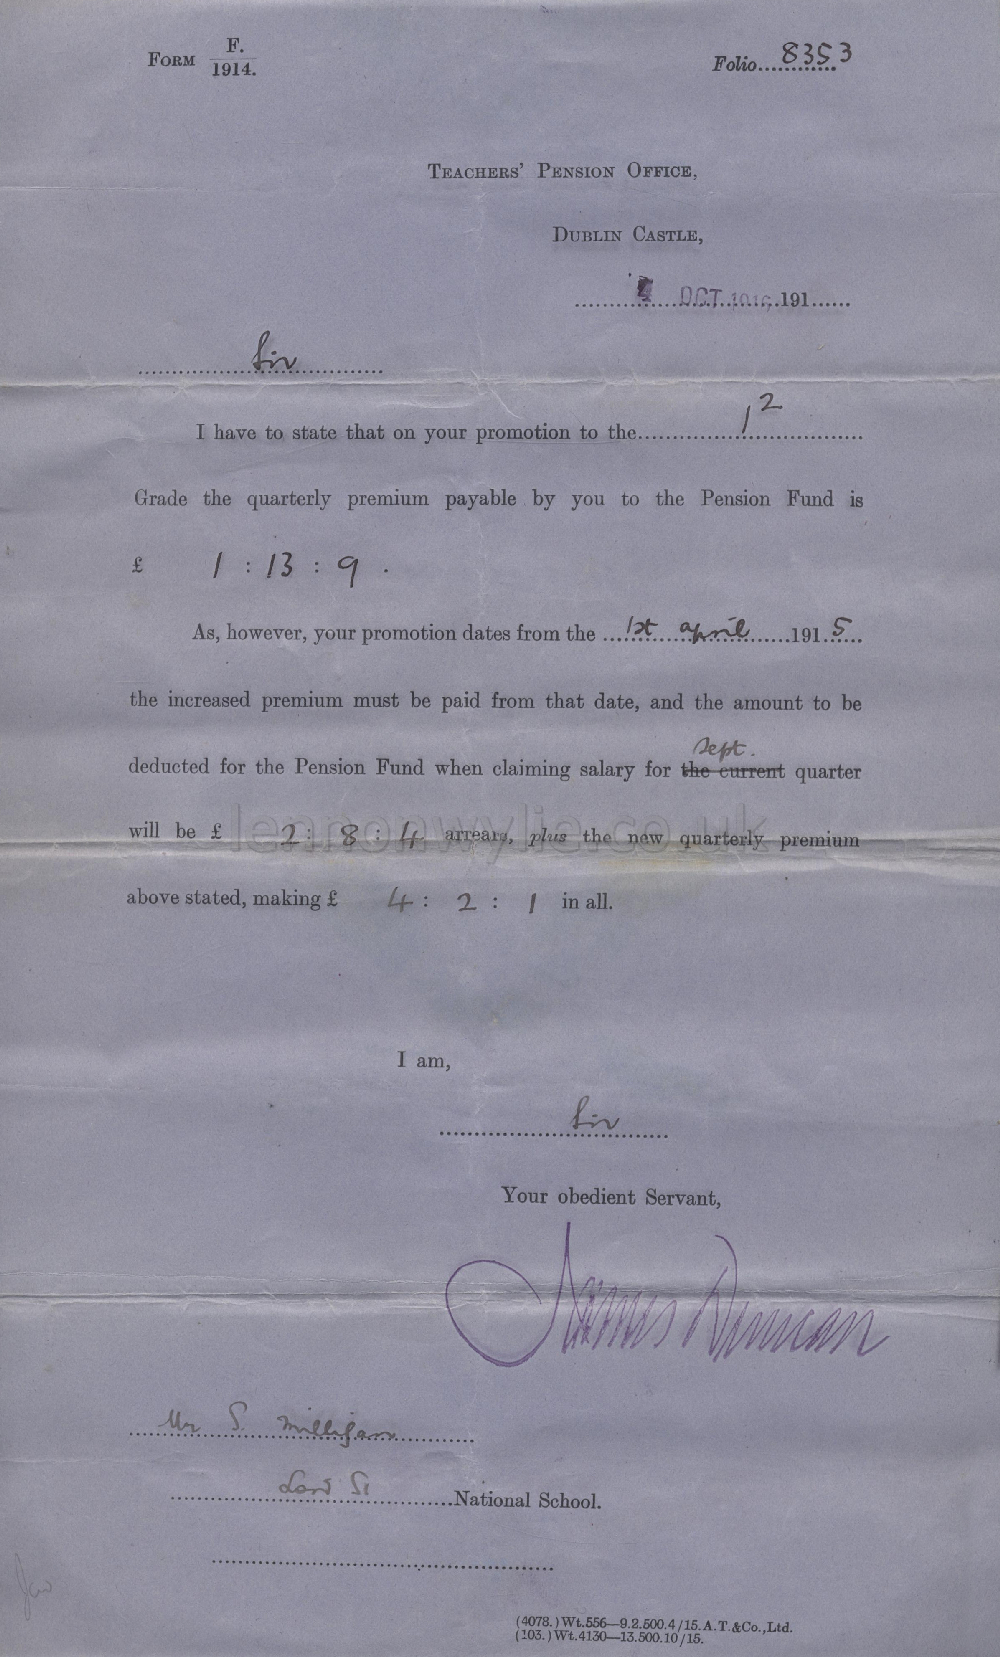 FORM F. 1914.
Folio 8353
TEACHERS' PENSION OFFICE,
DUBLIN CASTLE,
4 OCT 1916 191
Sir
I have to state that on your promotion to the 1²
Grade the quarterly premium payable by you to the Pension Fund is
£ 1 : 13 : 9 .
As, however, your promotion dates from the 1st april 1915
the increased premium must be paid from that date, and the amount to be
Sept.
deducted for the Pension Fund when claiming salary for the current quarter
will be £ 2 : 8 : 4 arrears, plus the new quarterly premium
lennonwylie.co.uk
above stated, making £ 4 : 2 : 1 in all.
I am,
Sir
Your obedient Servant,
James Duncan
Mr S. Milligan
Lord St National School.
(4078.) Wt.556—9.2.500.4/15.A.T.&Co.,Ltd.
(103.) Wt.4130—13.500.10/15.